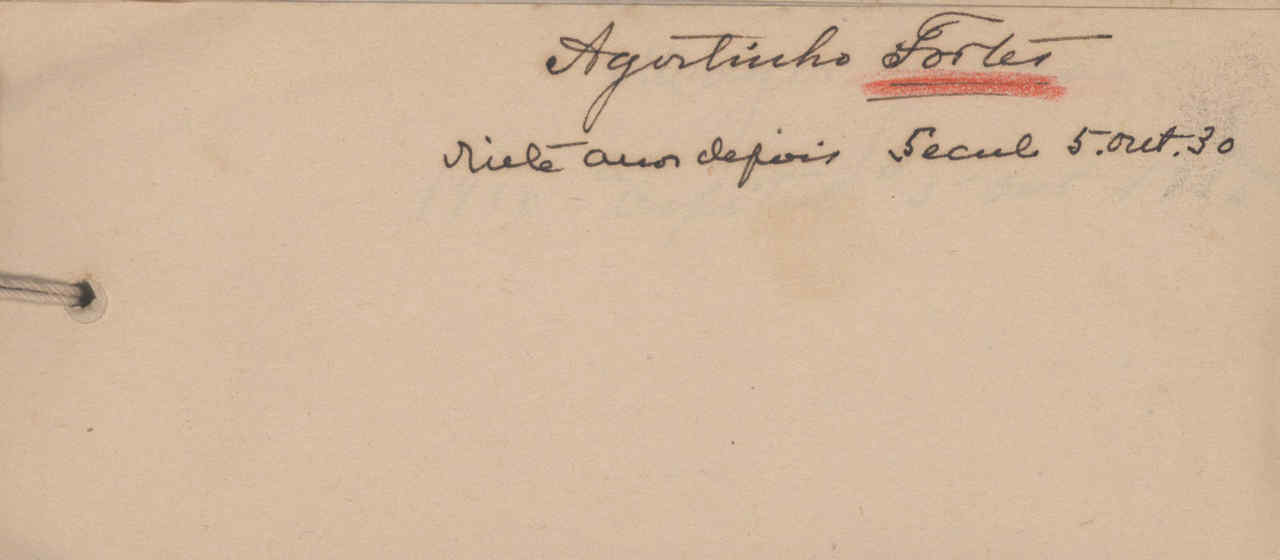 Agostinho Fortes
vinte anos depois Secul 5.out.30